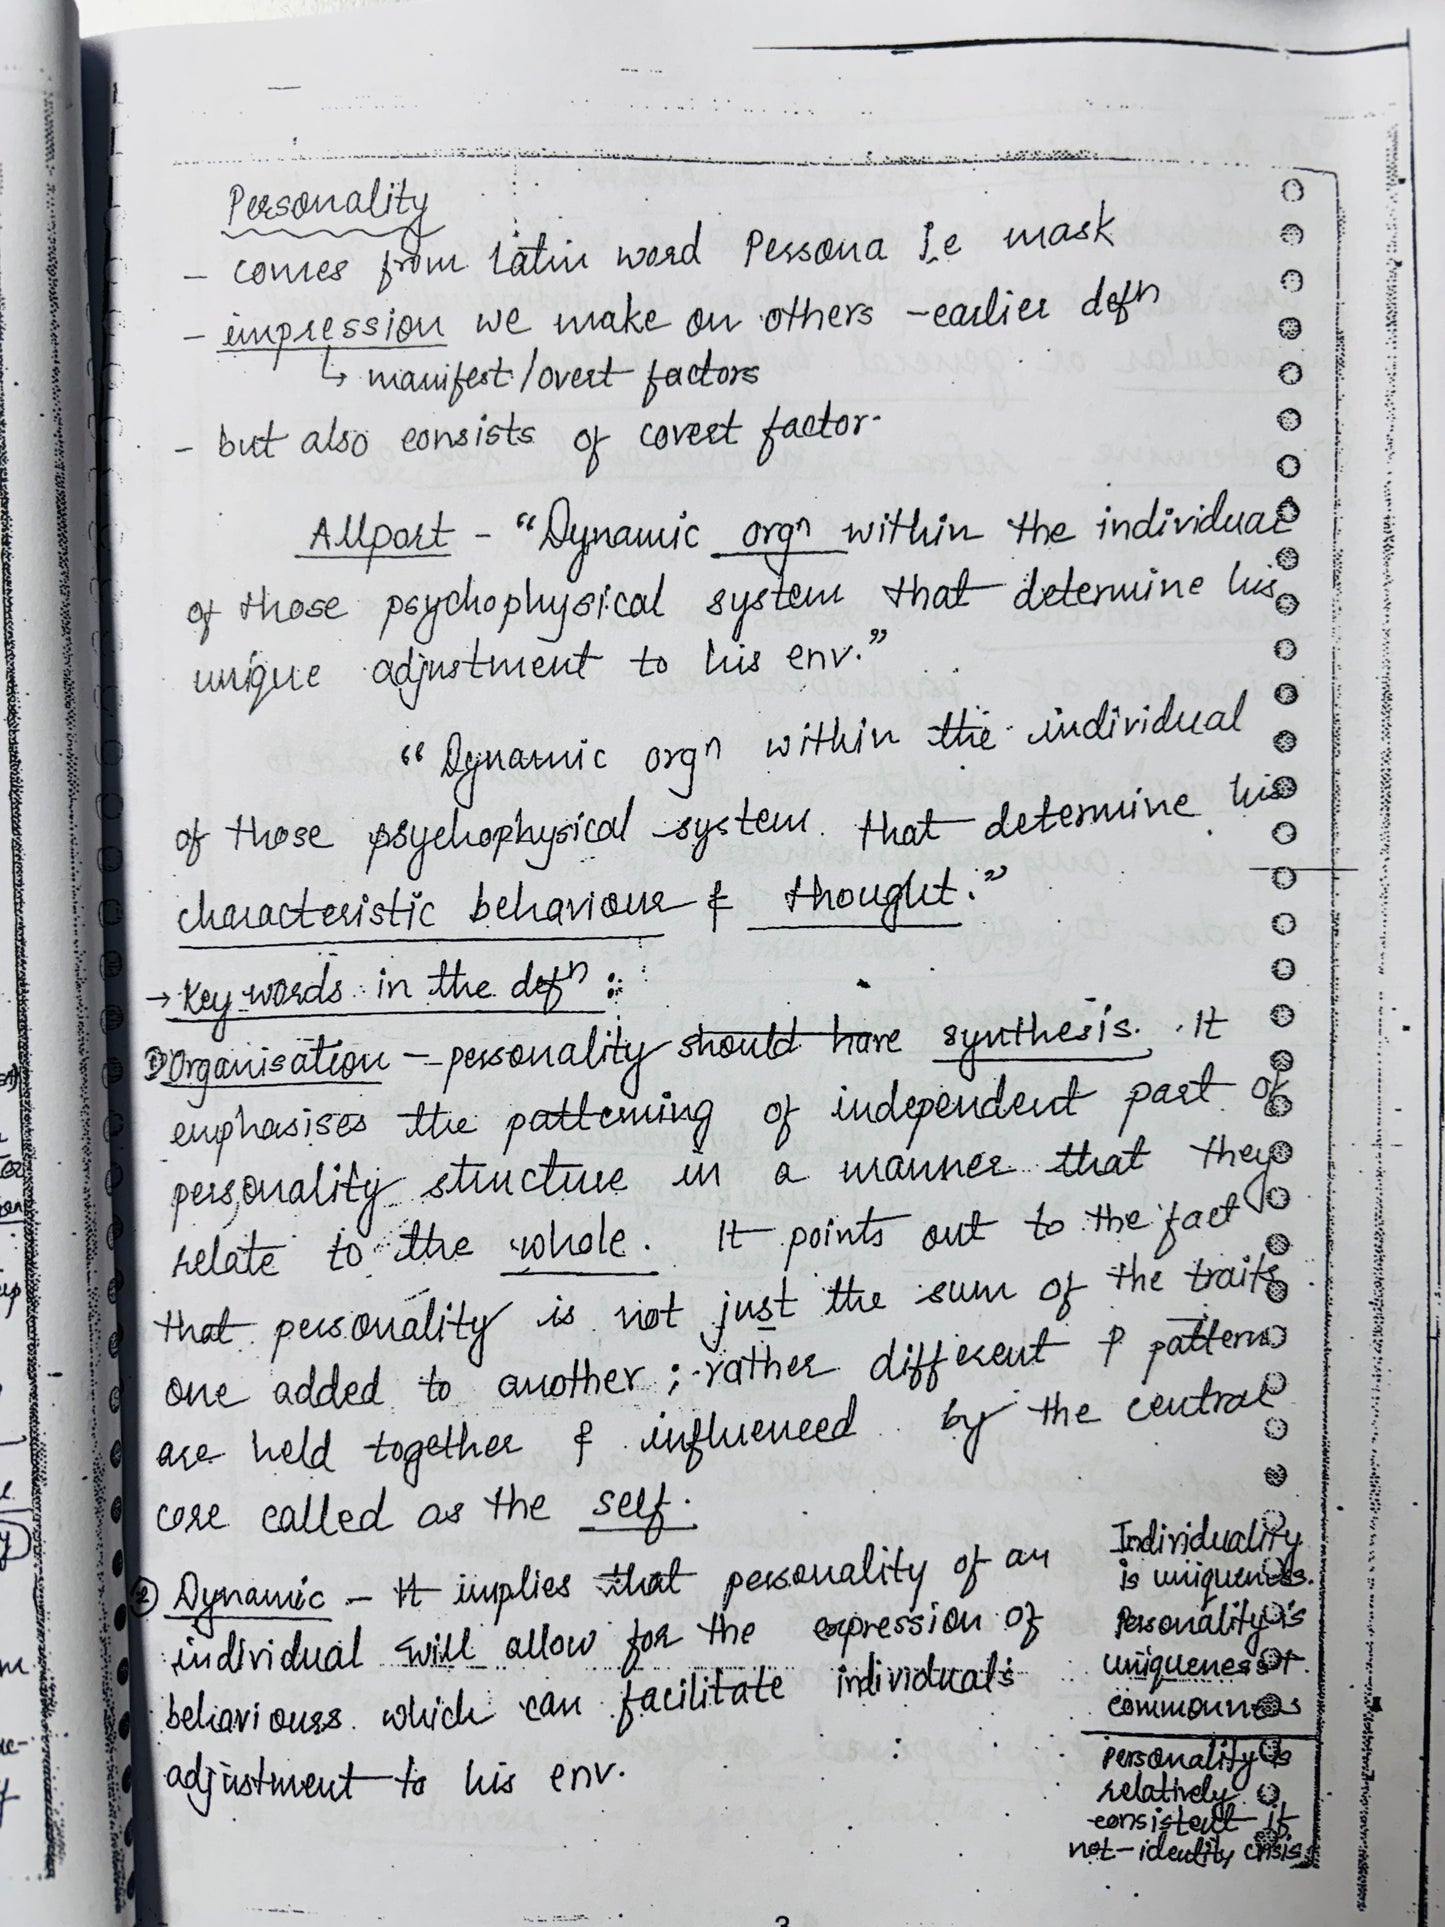 Personality
- comes from Latin word Persona I.e mask
- impression we make on others - earlier defn
↳ manifest/overt factors
- but also consists of covert factor.
Allport - "Dynamic orgn within the individual
of those psychophysical system that determine his
unique adjustment to his env."
"Dynamic orgn within the individual
of those psychophysical system that determine his
characteristic behaviour & thought."
→ Key words in the defn :
① Organisation - personality should have synthesis. It
emphasises the patterning of independent part of
personality structure in a manner that they
relate to the whole. It points out to the fact
that personality is not just the sum of the traits
one added to another ; rather different & pattern
are held together & influenced by the central
core called as the self.
② Dynamic - It implies that personality of an
individual will allow for the expression of
behaviours which can facilitate individual's
adjustment to his env.
Individuality
is uniqueness.
Personality is
uniqueness +
commonness
personality is
relatively
consistent if
not - identity crisis
3